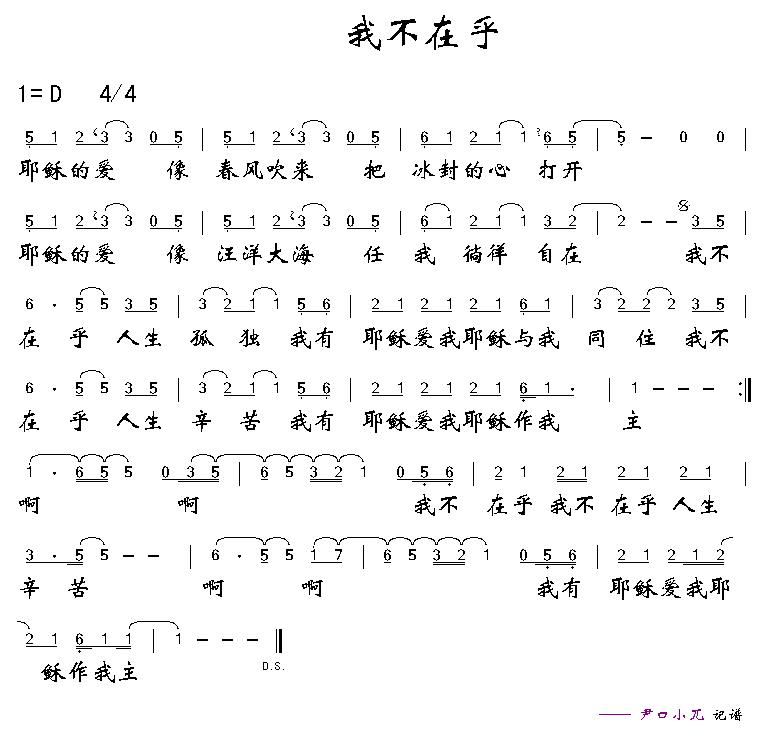 我不在乎
1=D 4/4
5 1 2 3 3 0 5 | 5 1 2 3 3 0 5 | 6 1 2 1 1 6 5 | 5 - 0 0 |
耶稣的爱 像 春风吹来 把 冰封的心 打开
5 1 2 3 3 0 5 | 5 1 2 3 3 0 5 | 6 1 2 1 1 3 2 | 2 - - 3 5
耶稣的爱 像 汪洋大海 任 我 徜徉 自在 我不
6 · 5 5 3 5 | 3 2 1 1 5 6 | 2 1 2 1 2 1 6 1 | 3 2 2 2 3 5 |
在 乎 人生 孤 独 我有 耶稣爱我耶稣与我 同 住 我不
6 · 5 5 3 5 | 3 2 1 1 5 6 | 2 1 2 1 2 1 6 1 · | 1 - - - :||
在 乎 人生 辛 苦 我有 耶稣爱我耶稣作我 主
1 · 6 5 5 0 3 5 | 6 5 6 5 3 2 1 0 5 6 | 2 1 2 1 2 1 2 1 |
啊 啊 我不 在乎 我不 在乎 人生
3 · 5 5 - - | 6 · 6 5 5 1 7 | 6 5 3 2 1 0 5 6 | 2 1 2 1 2
辛 苦 啊 啊 我有 耶稣爱我耶
2 1 6 1 1 | 1 - - - ||
D.S.
稣作我主
—— 尹口小兀 记谱